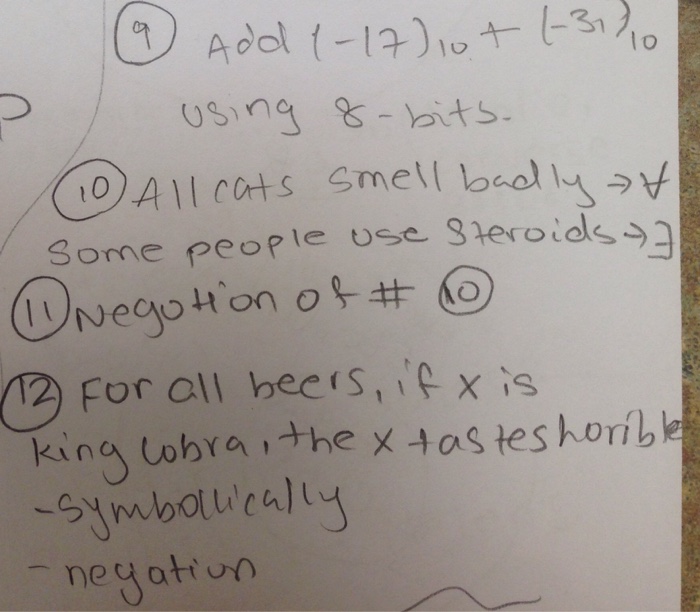 9 Add (-17)10 + (-31)10
using 8-bits.
10 All cats smell badly → ∀
some people use steroids → ∃
11 Negotion of # 10
12 For all beers, if x is
king cobra, the x tastes horible
-symbollically
- negation